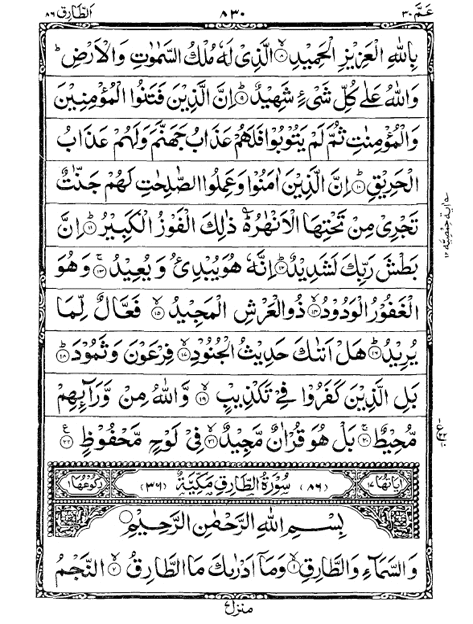 عَمَّ ٣٠
٨٣٠
الطَّارِق ٨٦
بِاللّٰهِ الْعَزِيْزِ الْحَمِيْدِ ۙ﴿٨﴾ الَّذِيْ لَهٗ مُلْكُ السَّمٰوٰتِ وَالْاَرْضِ ؕ
وَاللّٰهُ عَلٰى كُلِّ شَيْءٍ شَهِيْدٌ ؕ﴿٩﴾ اِنَّ الَّذِيْنَ فَتَنُوا الْمُؤْمِنِيْنَ
وَالْمُؤْمِنٰتِ ثُمَّ لَمْ يَتُوْبُوْا فَلَهُمْ عَذَابُ جَهَنَّمَ وَلَهُمْ عَذَابُ
الْحَرِيْقِ ؕ﴿١٠﴾ اِنَّ الَّذِيْنَ اٰمَنُوْا وَعَمِلُوا الصّٰلِحٰتِ لَهُمْ جَنّٰتٌ
تَجْرِيْ مِنْ تَحْتِهَا الْاَنْهٰرُ ؕ ذٰلِكَ الْفَوْزُ الْكَبِيْرُ ؕ﴿١١﴾ اِنَّ
بَطْشَ رَبِّكَ لَشَدِيْدٌ ؕ﴿١٢﴾ اِنَّهٗ هُوَ يُبْدِئُ وَيُعِيْدُ ۚ﴿١٣﴾ وَهُوَ
الْغَفُوْرُ الْوَدُوْدُ ۙ﴿١٤﴾ ذُو الْعَرْشِ الْمَجِيْدُ ۙ﴿١٥﴾ فَعَّالٌ لِّمَا
يُرِيْدُ ؕ﴿١٦﴾ هَلْ اَتٰىكَ حَدِيْثُ الْجُنُوْدِ ۙ﴿١٧﴾ فِرْعَوْنَ وَثَمُوْدَ ؕ﴿١٨﴾
بَلِ الَّذِيْنَ كَفَرُوْا فِيْ تَكْذِيْبٍ ۙ﴿١٩﴾ وَّاللّٰهُ مِنْ وَّرَآئِهِمْ
مُّحِيْطٌ ۚ﴿٢٠﴾ بَلْ هُوَ قُرْاٰنٌ مَّجِيْدٌ ۙ﴿٢١﴾ فِيْ لَوْحٍ مَّحْفُوْظٍ ﴿٢٢﴾
اٰيَاتُهَا ١٧ (٨٦) سُوْرَةُ الطَّارِقِ مَكِّيَّةٌ (٣٦) رُكُوْعُهَا ١
بِسْمِ اللّٰهِ الرَّحْمٰنِ الرَّحِيْمِ
وَالسَّمَآءِ وَالطَّارِقِ ۙ﴿١﴾ وَمَآ اَدْرٰىكَ مَا الطَّارِقُ ۙ﴿٢﴾ النَّجْمُ
منزل ٧